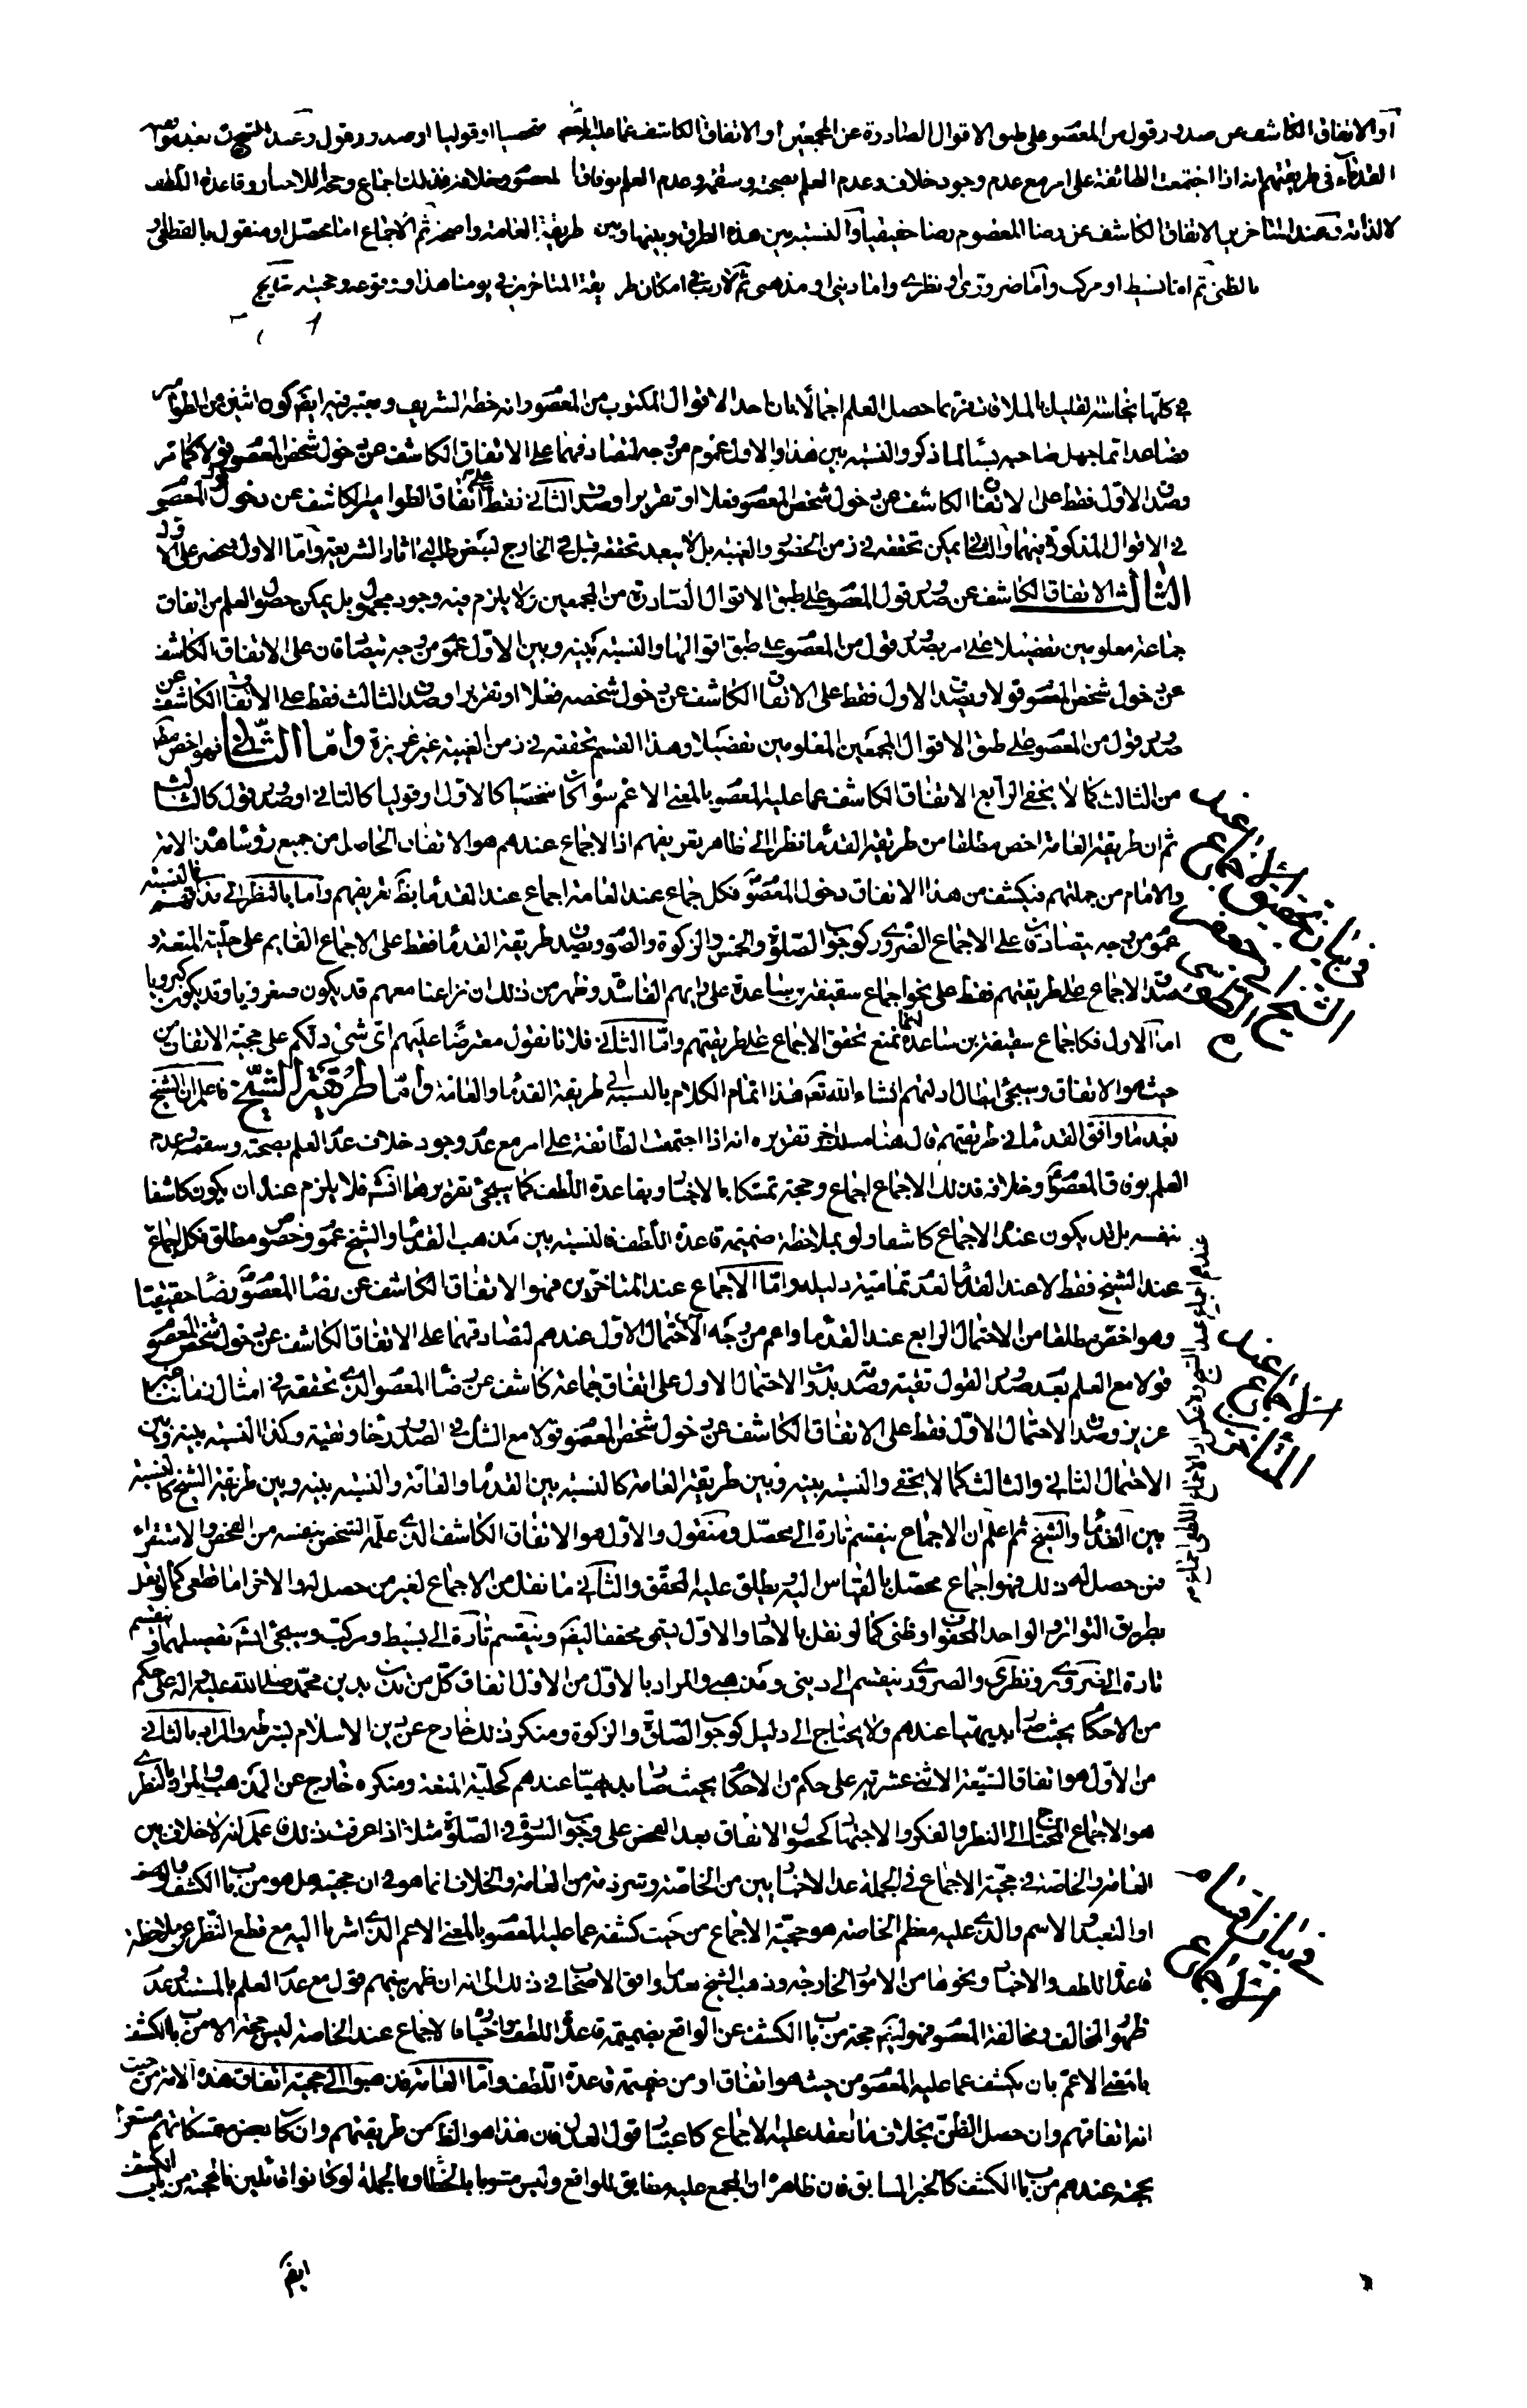 أو الاتفاق الكاشف عن صدور قول من المعصوم على طبق الاقوال الصادرة عن المجمعين او الاتفاق الكاشف عما عليه المعصوم شخصيا او قوليا او صدور قول وعند الشيخ بعد
القدماء في طريقتهم انه اذا اجتمعت الطائفة على امر مع عدم وجود خلاف وعدم العلم بصحته وسقمه وعدم العلم بوفاق المعصوم وخلافه فذلك اجماع وحجة للاخبار وقاعدة اللطف
لا لذاته وعند المتاخرين الاتفاق الكاشف عن رضا المعصوم رضا حقيقيا والنسبة بين هذه الطرق وبينها وبين طريقة العامة واضحة ثم الاجماع اما محصل او منقول بالقطعي او
بالظني ثم اما بسيط او مركب واما ضروري او نظري واما ديني او مذهبي ثم لا ريب في امكان طريقة المتاخرين في يومنا هذا ووقوعه وحجيته
في كلها نجاسة القليل بالملاقات فربما حصل العلم اجمالا بان احد الاقوال المكتوب من المعصوم وانه خطه الشريف ويعتبر فيه ايضا كون اثنين من الطوامير
فصاعدا مما جهل صاحبه بسئالما ذكر والنسبة بين هذا والاول عموم من وجه لتصادقهما على الاتفاق الكاشف عن دخول شخص المعصوم قولا كما مر
وصدق الاول فقط على الاتفاق الكاشف عن دخول شخص المعصوم فعلا او تقريرا وصدق الثاني فقط على اتفاق الطوامير الكاشف عن دخول قول المعصوم
في الاقوال المذكورة فيهما والثاني يمكن تحققه في زمن الحضور والغيبة بل لا يبعد تحققه قبل في الخارج لبعض طالبي اثار الشريعة واما الاول فيحضر على الا
الثالث الاتفاق الكاشف عن صدور قول المعصوم على طبق الاقوال الصادرة من المجمعين ولا يلزم فيه وجود مجهول بل يمكن حصول العلم من اتفاق
جماعة معلومين تفصيلا على امر بصدور قول من المعصوم على طبق اقوالها والنسبة بينه وبين الاول عموم من وجه يتصادقان على الاتفاق الكاشف
عن دخول شخص المعصوم قولا ويصدق الاول فقط على الاتفاق الكاشف عن دخول شخصه فعلا او تقريرا وصدق الثالث فقط على الاتفاق الكاشف عن
صدور قول من المعصوم على طبق الاقوال المجمعين المعلومين تفصيلا وهذا القسم تحققه في زمن الغيبة غير عزيزة واما الثاني فهو اخص مطلقا
من الثالث كما لا يخفى الرابع الاتفاق الكاشف عما عليه المعصوم بالمعنى الاعم سواء كان شخصيا كالاول او قوليا كالثاني او صدور قول كالثالث
ثم ان طريقة العامة اخص مطلقا من طريقة القدماء نظرا الى ظاهر تعريفهم اذ الاجماع عندهم هو الاتفاق الحاصل من جميع رؤساء هذه الامة
والامام من جملتهم فيكشف من هذا الاتفاق دخول المعصوم فكل اجماع عند العامة اجماع عند القدماء بظاهر تعريفهم واما بالنظر الى مذاقهم فالنسبة
عموم من وجه يتصادقان على الاجماع الضروري كوجوب الصلوة والخمس والزكوة والصوم ويصدق طريقة القدماء فقط على الاجماع القايم على حلية المتعة و
صدق الاجماع على طريقتهم فقط على نحو اجماع سقيفة بني ساعدة على رايهم الفاسد وظهر من ذلك ان نزاعنا معهم قد يكون صغرويا وقد يكون كبرويا
اما الاول فكاجماع سقيفة بني ساعدة نمنع تحقق الاجماع على طريقتهم واما الثاني فلانا نقول معترضا عليهم اي شيء دلكم على حجية الاتفاق من
حيث هو الاتفاق وسيجيء ابطال ادلتهم انشاء الله تعالى هذا تمام الكلام بالنسبة الى طريقة القدماء والعامة واما طريقة الشيخ فاعلم ان الشيخ
بعد ما وافق القدماء في طريقتهم قال هنا مسلك اخر تقريره انه اذا اجتمعت الطائفة على امر مع عدم وجود خلاف عدم العلم بصحته وسقمه وعدم
العلم بوفاق المعصوم وخلافه فذلك الاجماع اجماع وحجة تمسكا بالاخبار وبقاعدة اللطف كما سيجيء تقريرها انشاء الله فلا يلزم عنده ان يكون كاشفا
بنفسه بل قد يكون عنده الاجماع كاشفا ولو بملاحظة ضميمة قاعدة اللطف فالنسبة بين مذهب القدماء والشيخ عموم وخصوص مطلق فكل اجماع
عند الشيخ فقط لا عند القدماء لعدم تمامية دليله واما الاجماع عند المتاخرين فهو الاتفاق الكاشف عن رضا المعصوم رضا حقيقيا
وهو اخص مطلقا من الاحتمال الرابع عند القدماء واعم من وجه الاحتمال الاول عندهم لتصادقهما على الاتفاق الكاشف عن دخول شخص المعصوم
قولا مع العلم بعدم صدور القول تقية وصدق بدون الاحتمال الاول على اتفاق جماعة كاشف عن رضا المعصوم الذي تحققه في امثال زماننا غير
عزيز وصدق الاحتمال الاول فقط على الاتفاق الكاشف عن دخول شخص المعصوم قولا مع الشك في الصدور رضا وتقية وكذا النسبة بينه وبين
الاحتمال الثاني والثالث كما لا يخفى والنسبة بينه وبين طريقة العامة كالنسبة بين القدماء والعامة والنسبة بينه وبين طريقة الشيخ كالنسبة
بين القدماء والشيخ ثم اعلم ان الاجماع ينقسم تارة الى محصل ومنقول والاول هو الاتفاق الكاشف الذي علمه الشخص بنفسه من الفحص والاستقراء
فمن حصل له ذلك فهو اجماع محصل بالقياس اليه ويطلق عليه المحقق والثاني ما نقل من الاجماع لغير من حصل له والاخر اما قطعي كما لو نقل
بطريق التواتر والواحد المحفوف او ظني كما لو نقل بالاحاد والاول يسمى محققا ايضا وينقسم تارة الى بسيط ومركب وسيجيء انشاء الله تفصيلهما وينقسم
تارة الى ضروري ونظري والضروري ينقسم الى ديني ومذهبي والمراد بالاول من الاول اتفاق كل من تدين بدين محمد صلى الله عليه واله على حكم
من الاحكام بحيث صار بديهيا عندهم ولا يحتاج الى دليل كوجوب الصلوة والزكوة ومنكر ذلك خارج عن دين الاسلام بشرطه والمراد بالثاني
من الاول هو اتفاق الشيعة الاثني عشرية على حكم من الاحكام بحيث صار بديهيا عندهم كحلية المتعة ومنكره خارج عن المذهب والمراد بالنظري
هو الاجماع المحتاج الى النظر والفكر والاجتهاد كحصول الاتفاق بعد الفحص على وجوب السورة في الصلوة مثلا اذا عرفت ذلك فاعلم انه لا خلاف بين
العامة والخاصة في حجية الاجماع في الجملة عدا الاخباريين من الخاصة وشرذمة من العامة والخلاف انما هو في ان حجيته هل هو من باب الكشف والوصف
او التعبد والاسم والذي عليه معظم الخاصة هو حجية الاجماع من حيث كشفه عما عليه المعصوم بالمعنى الاعم الذي اشرنا اليه مع قطع النظر عن ملاحظة
قاعدة اللطف والاخبار ونحوها من الامور الخارجة وذهب الشيخ بعد ما وافق الاصحاب في ذلك الى انه ان ظهر بينهم قول مع عدم العلم بالمستند وعدم
ظهور المخالف ومخالفة المعصوم فهو ايضا حجة من باب الكشف عن الواقع بضميمة قاعدة اللطف واخبار فالاجماع عند الخاصة ليس حجة الا من باب الكشف
بالمعنى الاعم بان يكشف عما عليه المعصوم من حيث هو اتفاق او من ضميمة قاعدة اللطف واما العامة فذهبوا الى حجية اتفاق هذه الامة من حيث
انه اتفاقهم وان حصل الظن بخلاف ما انعقد عليه الاجماع كاعتبار قول العدل فان هذا هو الظاهر من طريقتهم وان كان بعض متمسكاتهم مشعرا
بحجيته عندهم من باب الكشف كالخبر السابق فان ظاهره ان المجمع عليه مطابق للواقع وليس مشوبا بالخطا وبالجملة لو كانوا قائلين بالحجية من باب الكشف
ايضا
في بيان تحقيق الاجماع عند الشيخ الطوسي
الاجماع عند المتاخرين
في بيان اقسام الاجماع